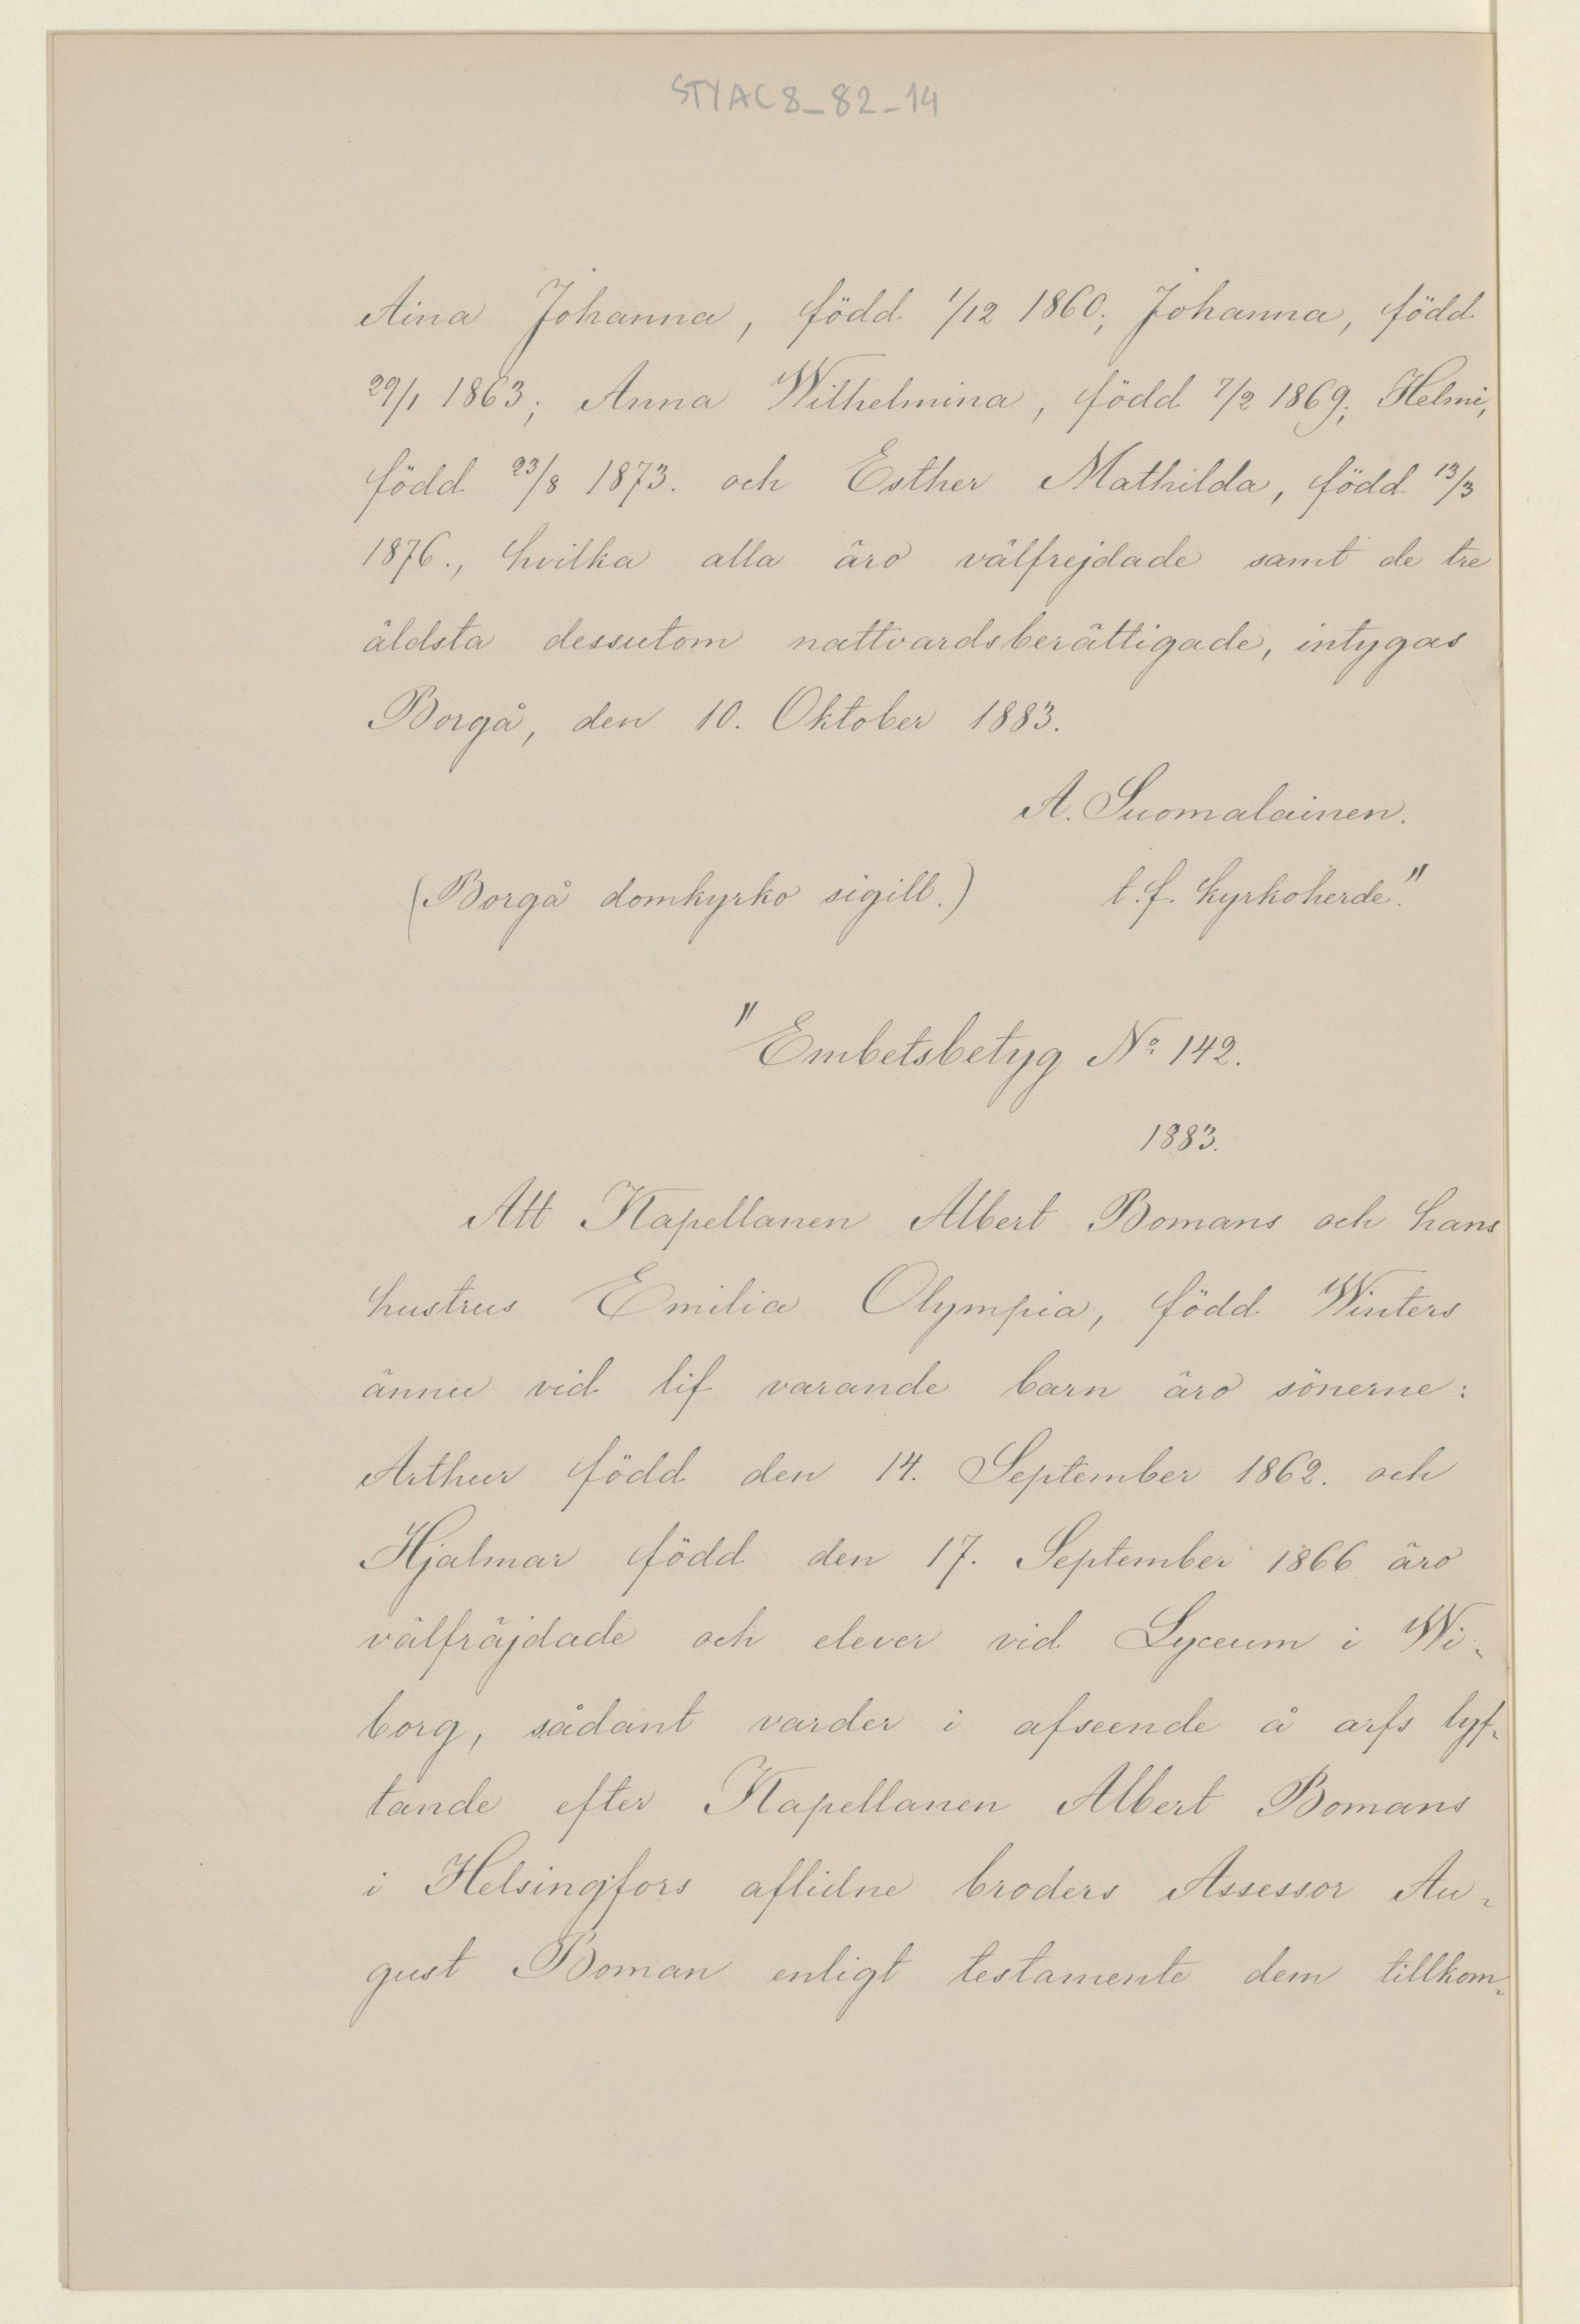 STYAC8_82_14
Aina Johanna, född 1/12 1860; Johanna, född
29/1 1863; Anna Wilhelmina, född 7/2 1869; Helmi,
född 23/8 1873. och Esther Mathilda, född 13/3
1876., hvilka alla äro välfrejdade samt de tre
äldsta dessutom nattvardsberättigade, intygas
Borgå, den 10. Oktober 1883.
A. Suomalainen.
(Borgå domkyrko sigill.) t.f. kyrkoherde."
"Embetsbetyg No 142.
1883.
Att Kapellanen Albert Bomans och hans
hustrus Emilia Olympia, född Winters
ännu vid lif varande barn äro sönerne:
Arthur född den 14. September 1862. och
Hjalmar född den 17. September 1866 äro
välfräjdade och elever vid Lyceum i Wi-
borg, sådant varder i afseende å arfs lyf-
tande efter Kapellanen Albert Bomans
i Helsingfors aflidne broders Assessor Au-
gust Boman enligt testamente dem tillkom-